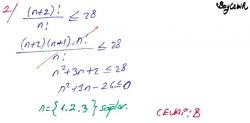 2/ (n+2)! / n! ≤ 28
(n+2)(n+1).n! / n! ≤ 28
n²+3n+2 ≤ 28
n²+3n-26≤0
n={1,2,3} sağlar.
CEVAP: B